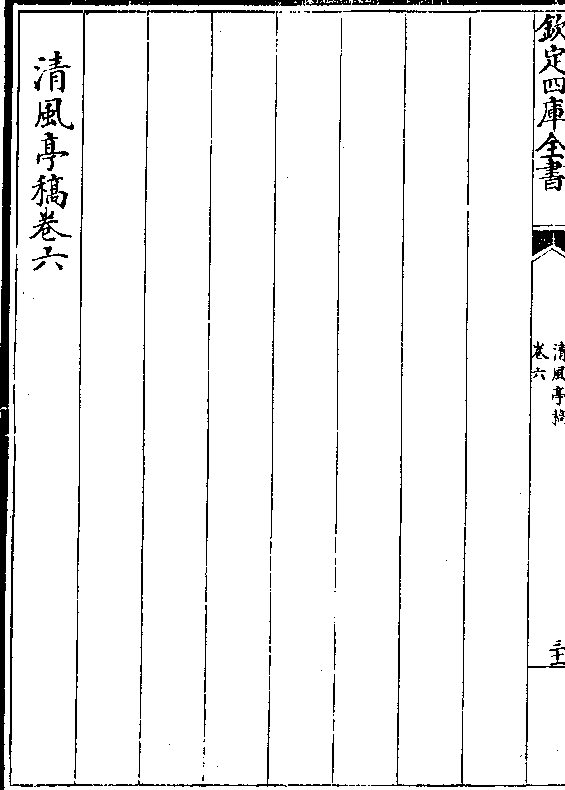 欽定四庫全書
清風亭稿
卷六
清風亭稿卷六